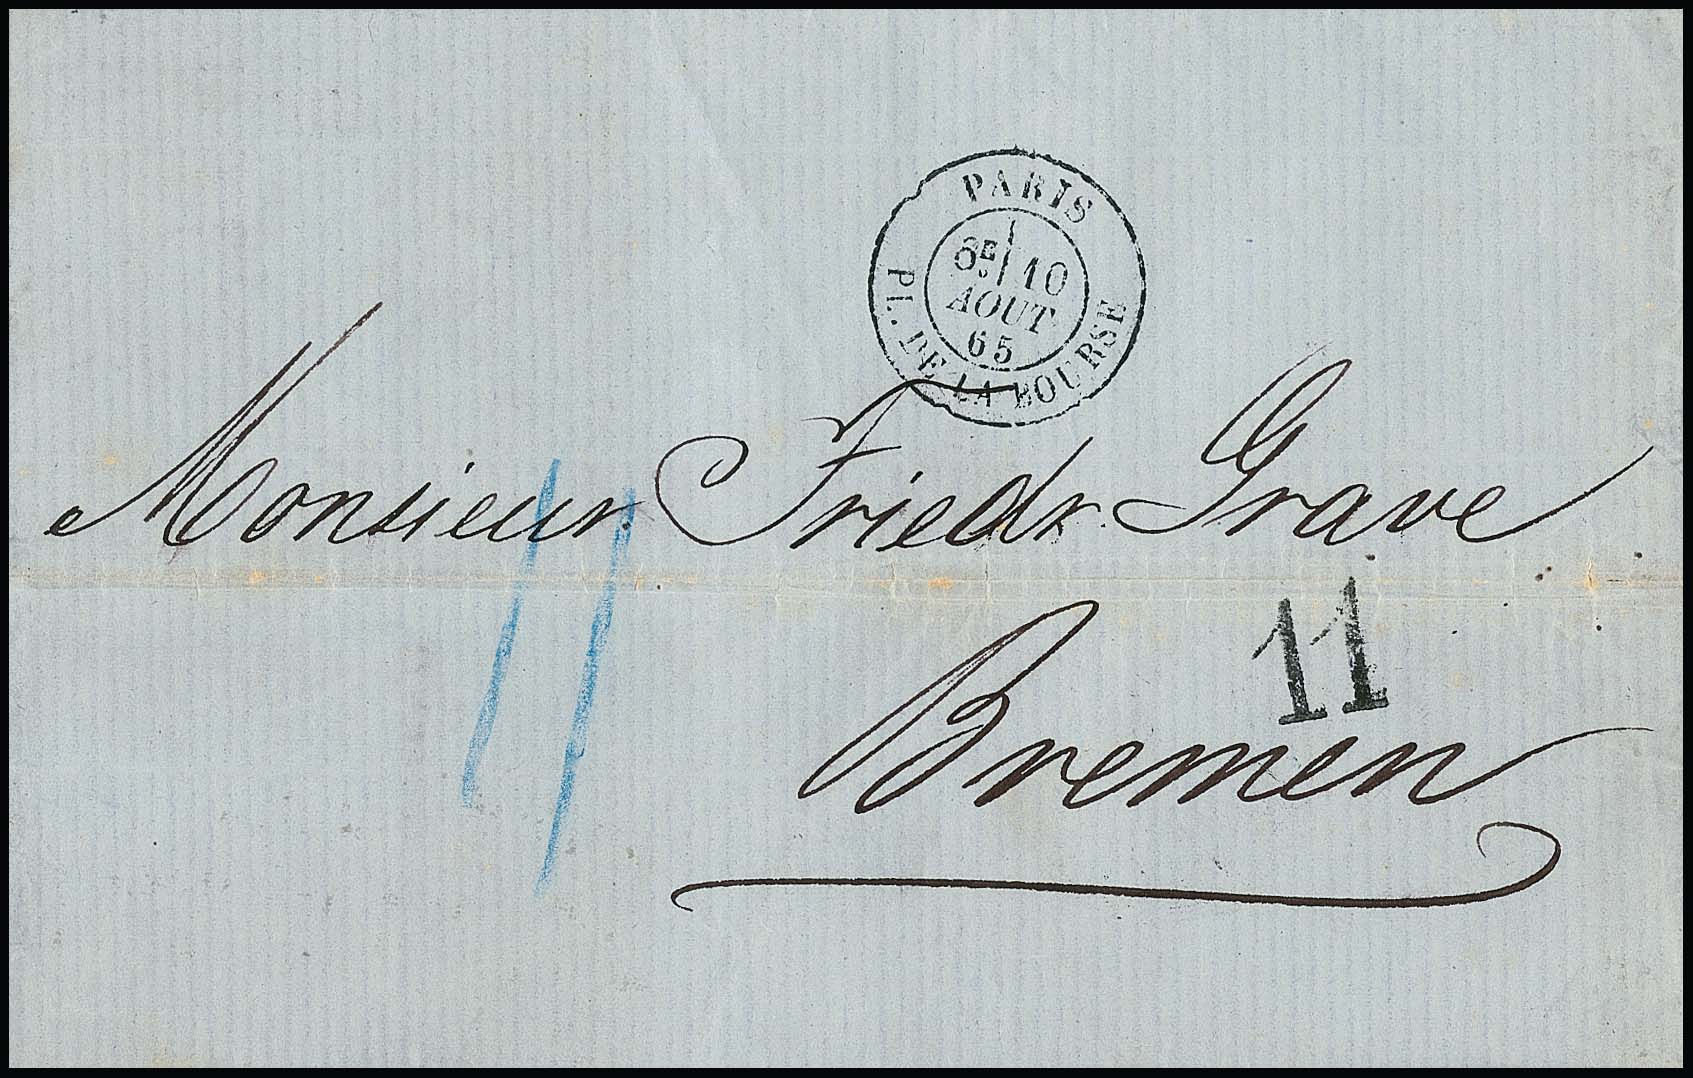 PARIS
6E 10
AOUT
65
PL. DE LA BOURSE
Monsieur Friedr. Grave
11
11
Bremen